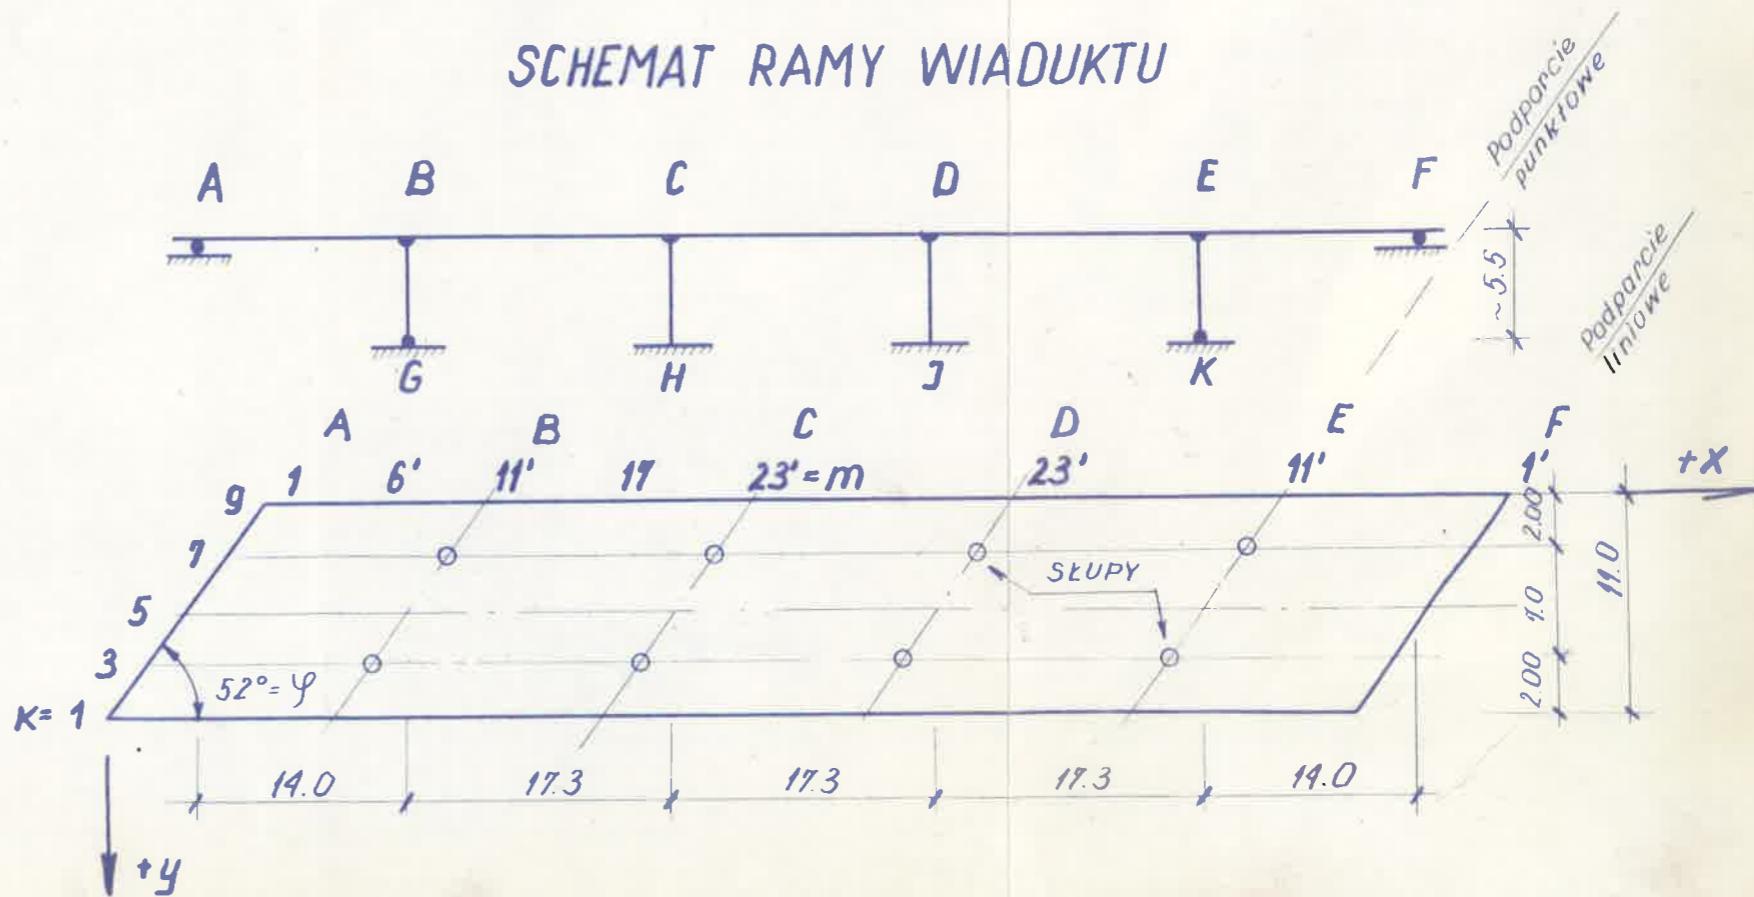 SCHEMAT RAMY WIADUKTU
Podparcie
punktowe
A B C D E F
~5.5
Podparcie
liniowe
G H J K
A B C D E F
9 1 6' 11' 17 23'=m 23' 11' 1' +X
7
5
3
K= 1
52°=φ
SŁUPY
2.00
7.0
2.00
11.0
14.0 17.3 17.3 17.3 14.0
+y